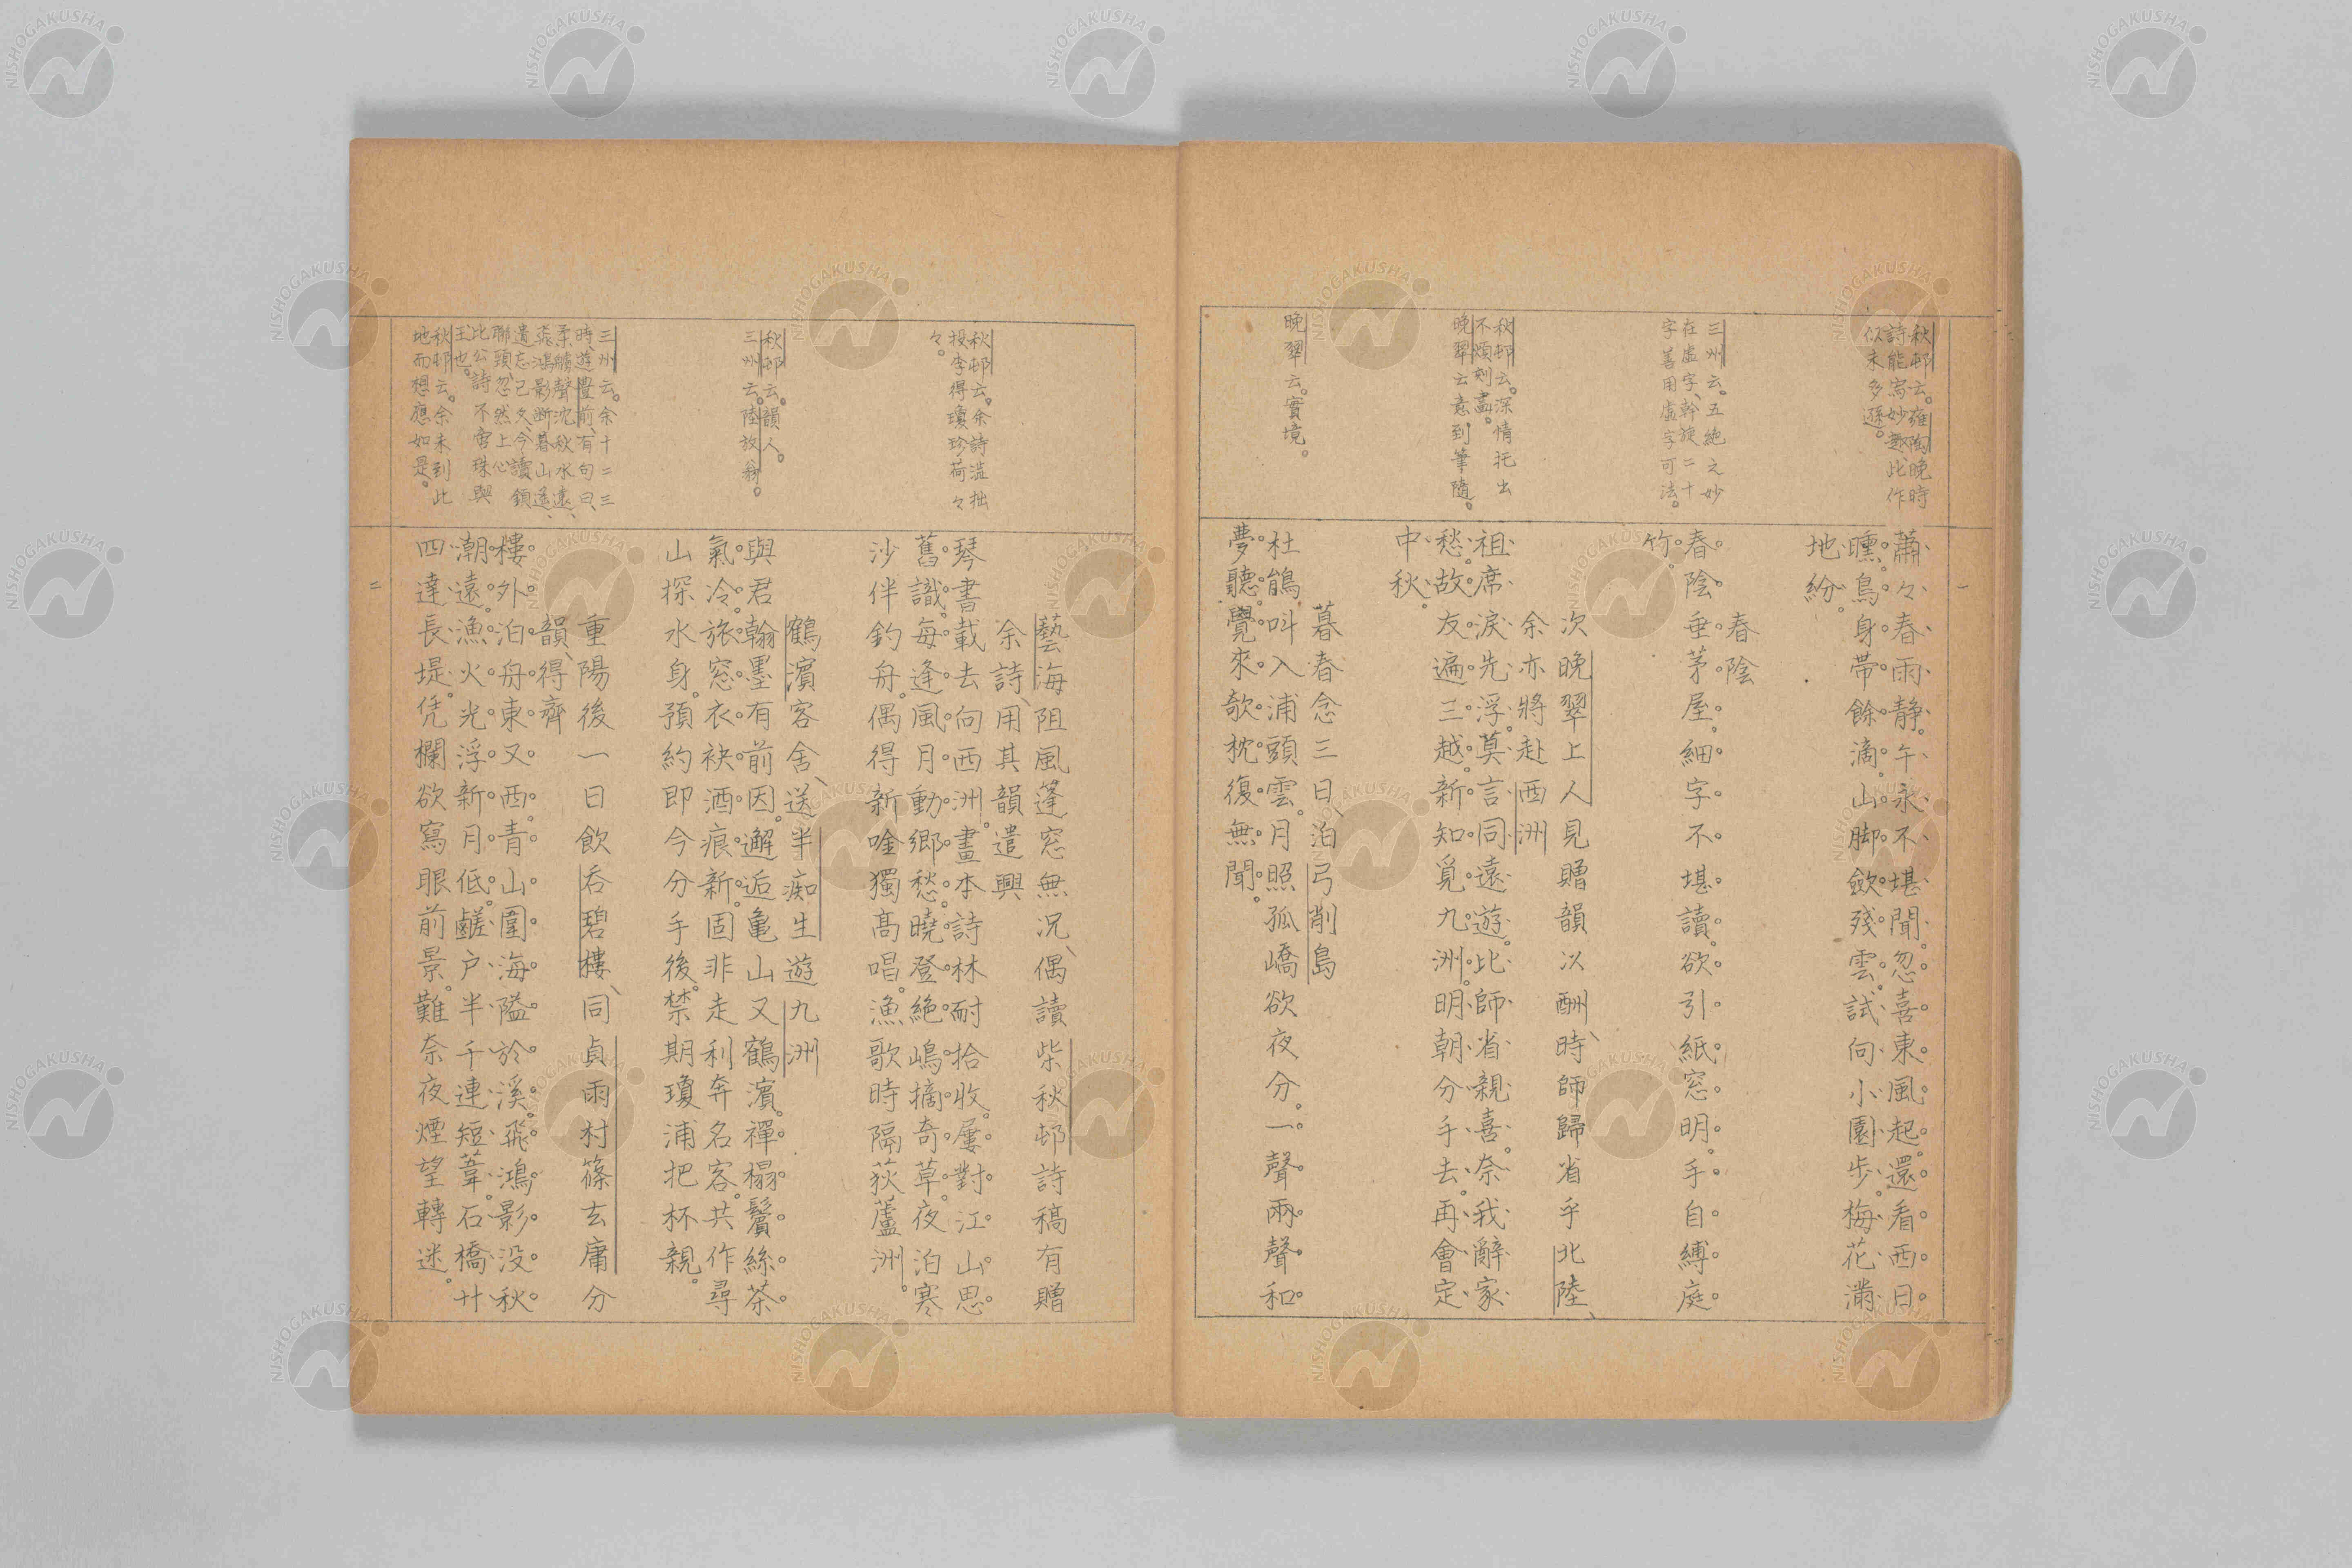 蕭々春雨靜。午永不堪聞。忽喜東風起。還看西日
曛。鳥身帶餘滴。山脚斂殘雲。試向小園步。梅花滿
地紛。
秋邨云。雍陶晚時
詩能寫妙趣、此作
似未多遜。
春陰
春陰垂茅屋。細字不堪讀。欲引紙窓明。手自縛庭
竹。
三州云。五絶之妙
在虚字、幹旋二十
字善用虚字可法。
次晚翠上人見贈韻以酬、時師歸省乎北陸、
余亦將赴西洲
祖席淚先浮。莫言同遠遊。比師省親喜。奈我辭家
愁。故友遍三越。新知覓九洲。明朝分手去。再會定
中秋。
秋邨云。深情托出
不煩刻畵。
晚翠云意到筆隨。
暮春念三日、泊弓削島
杜鵑叫入浦頭雲。月照孤嶠欲夜分。一聲兩聲和
夢聽。覺來欹枕復無聞。
晚翠云。實境。
一
藝海阻風蓬窓無况、偶讀柴秋邨詩稿有贈
余詩、用其韻遣興
琴書載去向西洲。畫本詩林耐拾收。屢對江山思
舊識。每逢風月動鄉愁。曉登絶嶋摘奇草。夜泊寒
沙伴釣舟。偶得新唫獨高唱。漁歌時隔荻蘆洲。
秋邨云。余詩溢拙
投李得瓊珍荷々
々。
鶴濱客舍、送半痴生遊九洲
與君翰墨有前因。邂逅亀山又鶴濱。禪榻鬢絲茶
氣冷。旅窓衣袂酒痕新。固非走利奔名客。共作尋
山探水身。預約即今分手後。禁期瓊浦把杯親。
秋邨云。韻人。
三州云。陸放翁。
重陽後一日飲呑碧樓、同貞雨村篠玄庸分
韻、得齊
樓外泊舟東又西。青山圍海隘於溪。飛鴻影没秋
潮遠。漁火光浮新月低。鹺户半千連短葦。石橋廿
四達長堤。凭欄欲寫眼前景。難奈夜煙望轉迷。
三州云。余十二三
時、遊豊前、有句曰、
柔艣聲沈秋水遠、
飛鴻影断暮山遥、
遺忘已久、今讀鎖
聯頭、忽然上心
比公詩不啻珠與
玉也。
秋邨云。余未到此
地而想應如是。
二